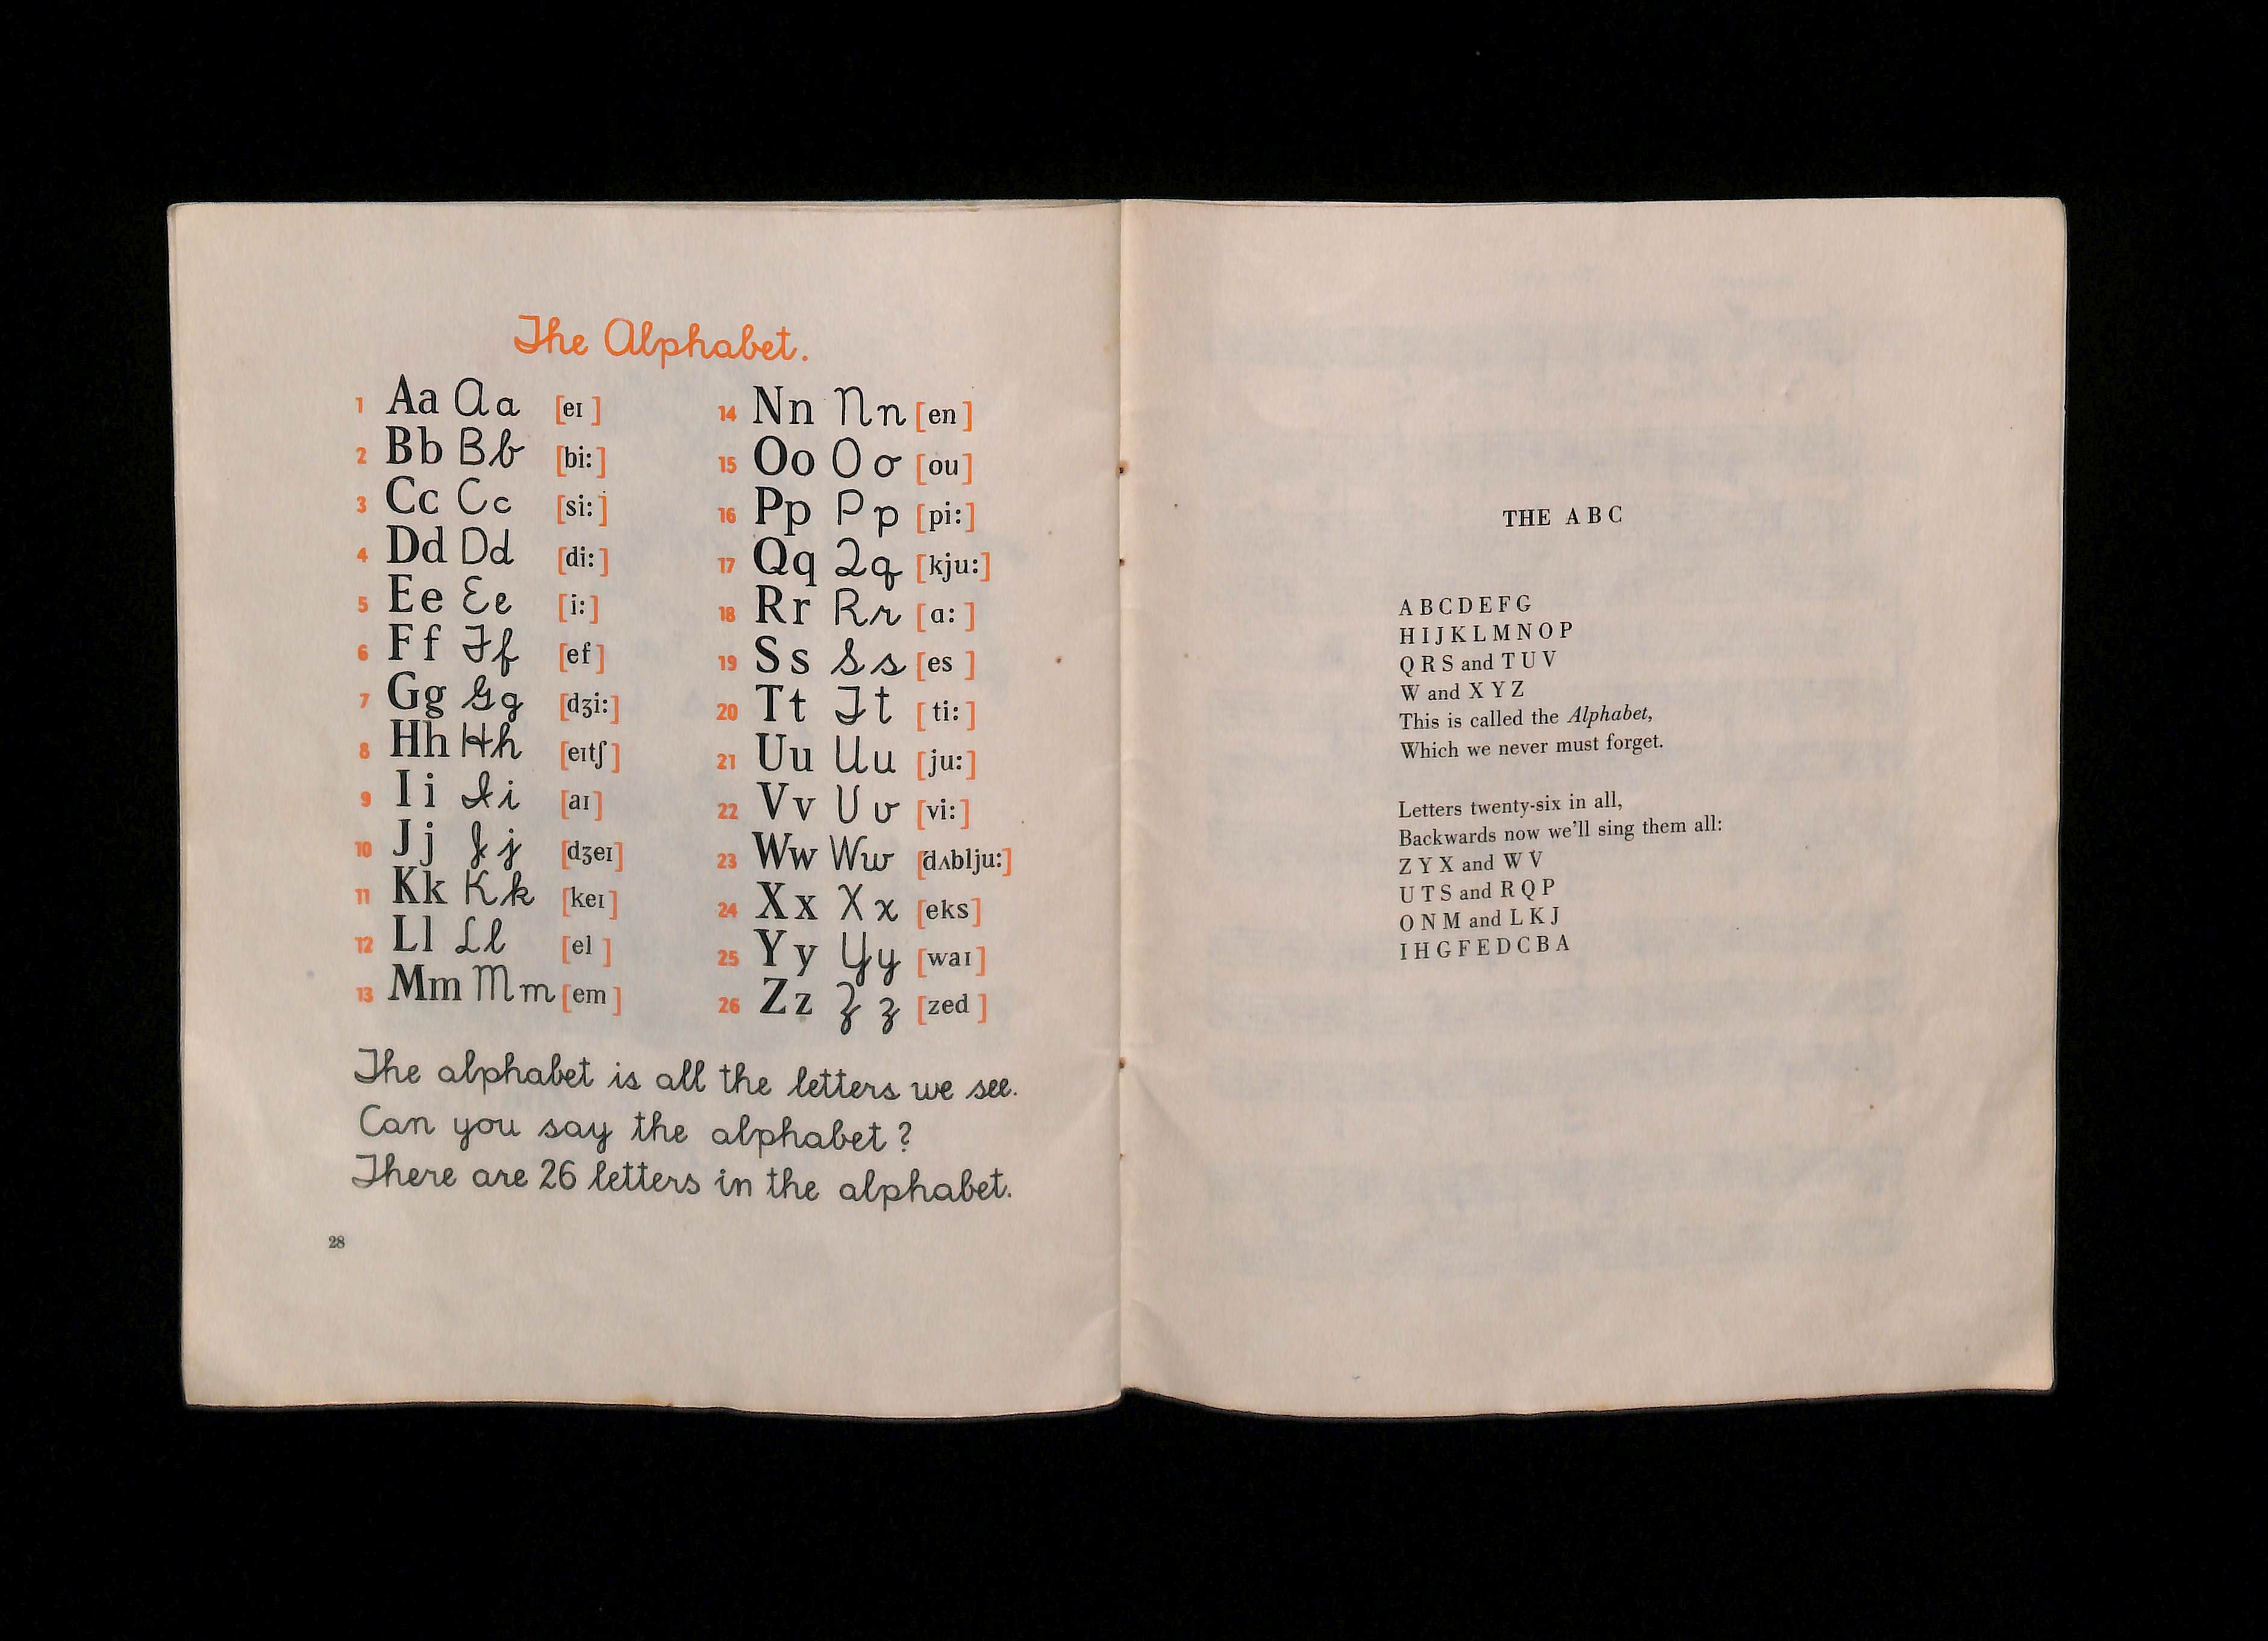 The Alphabet.
1 Aa Aa [eɪ]
2 Bb Bb [bi:]
3 Cc Cc [si:]
4 Dd Dd [di:]
5 Ee Ee [i:]
6 Ff Ff [ef]
7 Gg Gg [dʒi:]
8 Hh Hh [eɪtʃ]
9 Ii Ii [aɪ]
10 Jj Jj [dʒeɪ]
11 Kk Kk [keɪ]
12 Ll Ll [el]
13 Mm Mm [em]
14 Nn Nn [en]
15 Oo Oo [ou]
16 Pp Pp [pi:]
17 Qq Qq [kju:]
18 Rr Rr [ɑ:]
19 Ss Ss [es]
20 Tt Tt [ti:]
21 Uu Uu [ju:]
22 Vv Vv [vi:]
23 Ww Ww [dʌblju:]
24 Xx Xx [eks]
25 Yy Yy [waɪ]
26 Zz Zz [zed]
The alphabet is all the letters we see.
Can you say the alphabet?
There are 26 letters in the alphabet.
28
THE ABC
A B C D E F G
H I J K L M N O P
Q R S and T U V
W and X Y Z
This is called the Alphabet,
Which we never must forget.
Letters twenty-six in all,
Backwards now we'll sing them all:
Z Y X and W V
U T S and R Q P
O N M and L K J
I H G F E D C B A